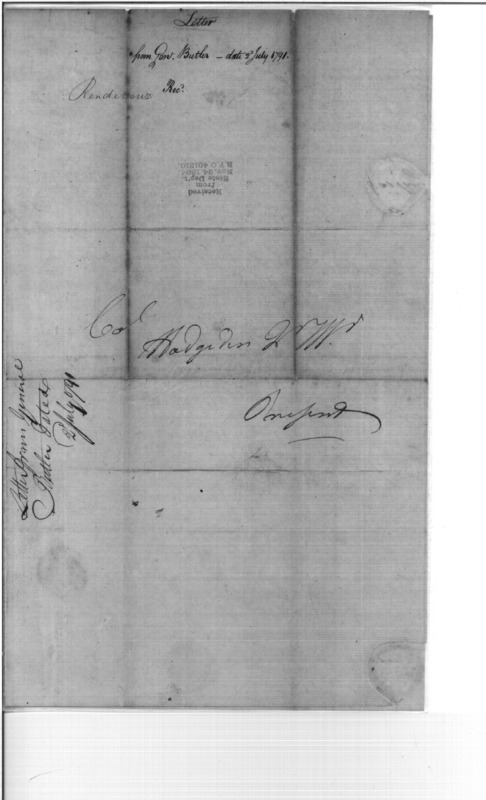 Letter
from Gen. Butler – date 2 July 1791.
Rendezvous Rec.d
Received
from
State Dep't.
Nov. 24, 1894
Col
Hodgden Qr Mr
Present
Letter from General
Butler Dated
2 July 1791